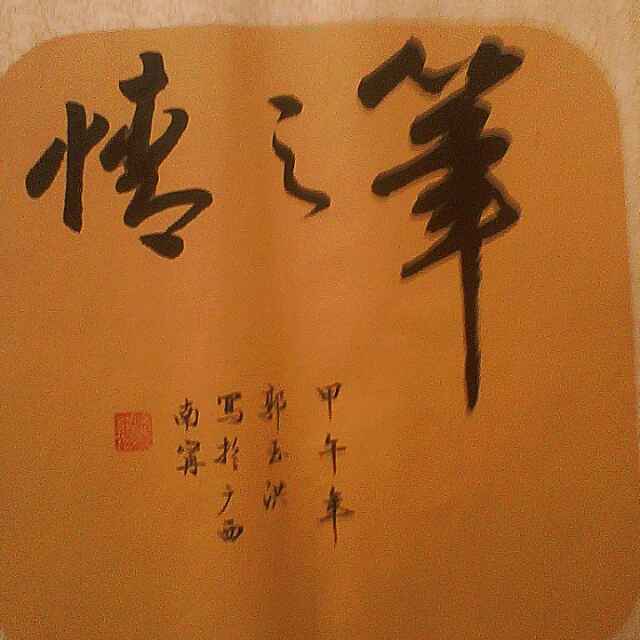 筆之情
甲午年
郭玉洪
写於广西
南寗